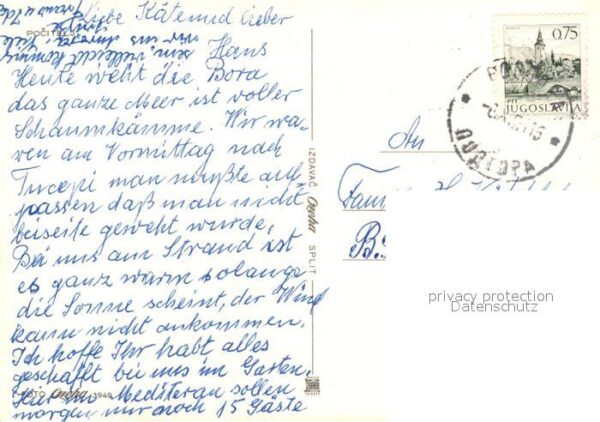 Liebe Käte und lieber
POČITELJ
Hans
Heute weht die Bora
das ganze Meer ist voller
Schaumkämme. Wir wa-
ren am Vormittag nach
Tucepi man mußte auf-
passen daß man nicht
beiseite geweht wurde,
Bei uns am Strand ist
es ganz warm solange
die Sonne scheint, der Wind
kann nicht ankommen.
Ich hoffe Ihr habt alles
geschafft bei uns im Garten.
Hier im Mediteran sollen
FOTO 3949
morgen nur noch 15 Gäste
IZDAVAČ SPLIT
0,75
PTT
JUGOSLAVIJA
ПОДГОРА
An
Fam
B.
privacy protection
Datenschutz